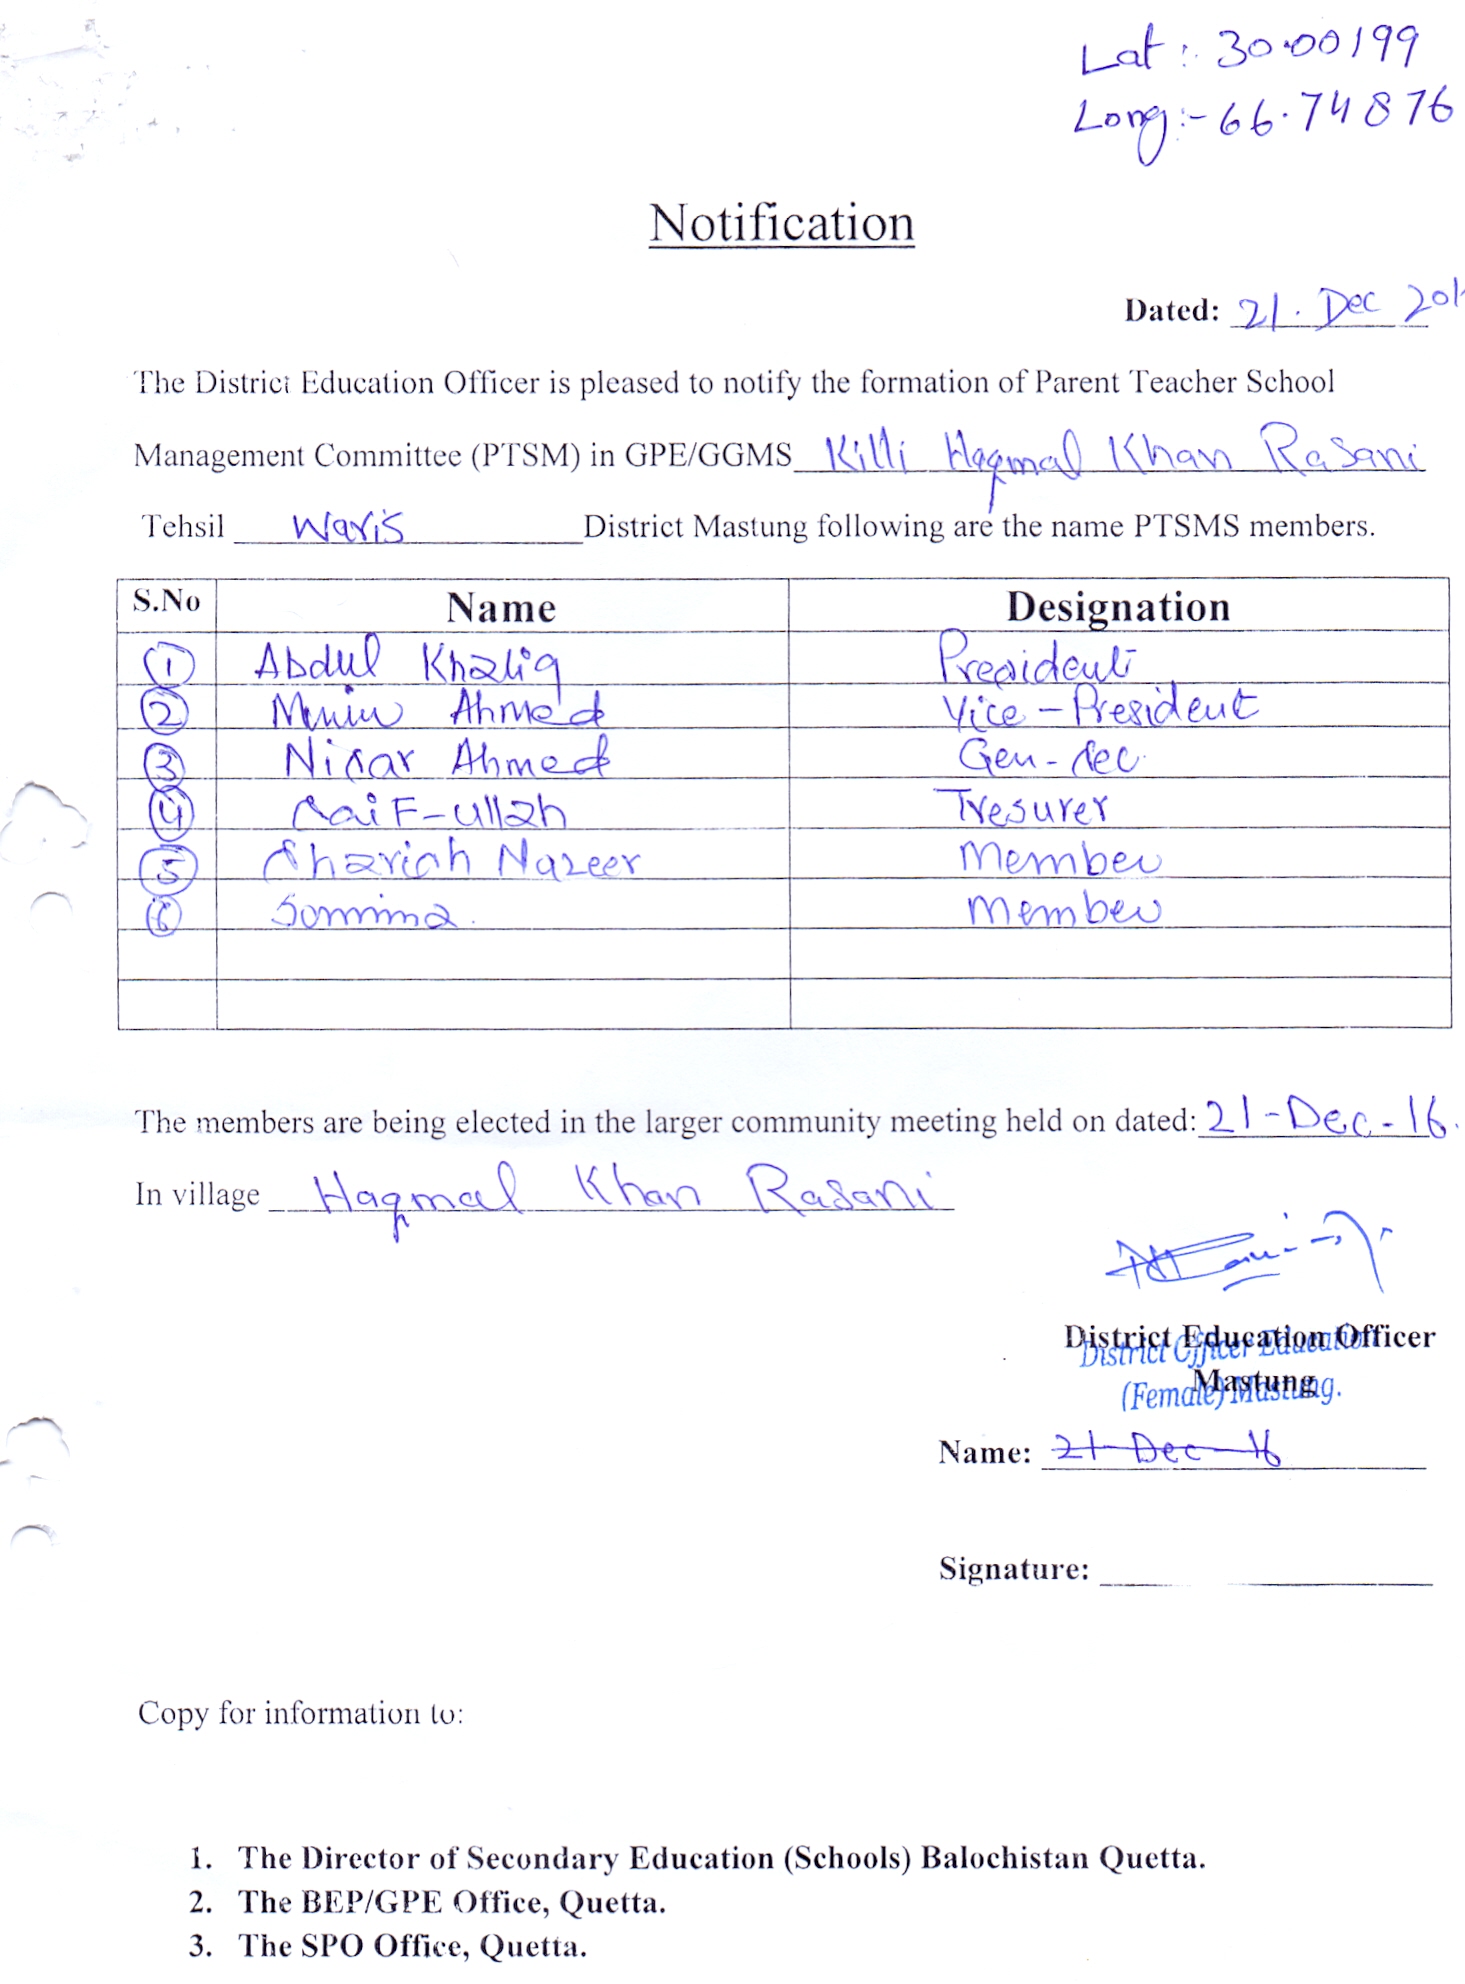 Lat: 30.00199
Long:- 66.74876
Notification
Dated: 21. Dec 201
The District Education Officer is pleased to notify the formation of Parent Teacher School
Management Committee (PTSM) in GPE/GGMS Killi Haqmal Khan Rasani
Tehsil Waris District Mastung following are the name PTSMS members.
S.No Name Designation
1 Abdul Khaliq President
2 Munir Ahmed Vice-President
3 Nisar Ahmed Gen-sec.
4 SaiF-ullah Tresurer
5 Nazeer Member
6 Member
The members are being elected in the larger community meeting held on dated: 21-Dec-16.
In village Haqmal Khan Rasani
District Education Officer
District Officer Education
Mastung
(Female) Mastung.
Name: 21-Dec-16
Signature:
Copy for information to:
1. The Director of Secondary Education (Schools) Balochistan Quetta.
2. The BEP/GPE Office, Quetta.
3. The SPO Office, Quetta.